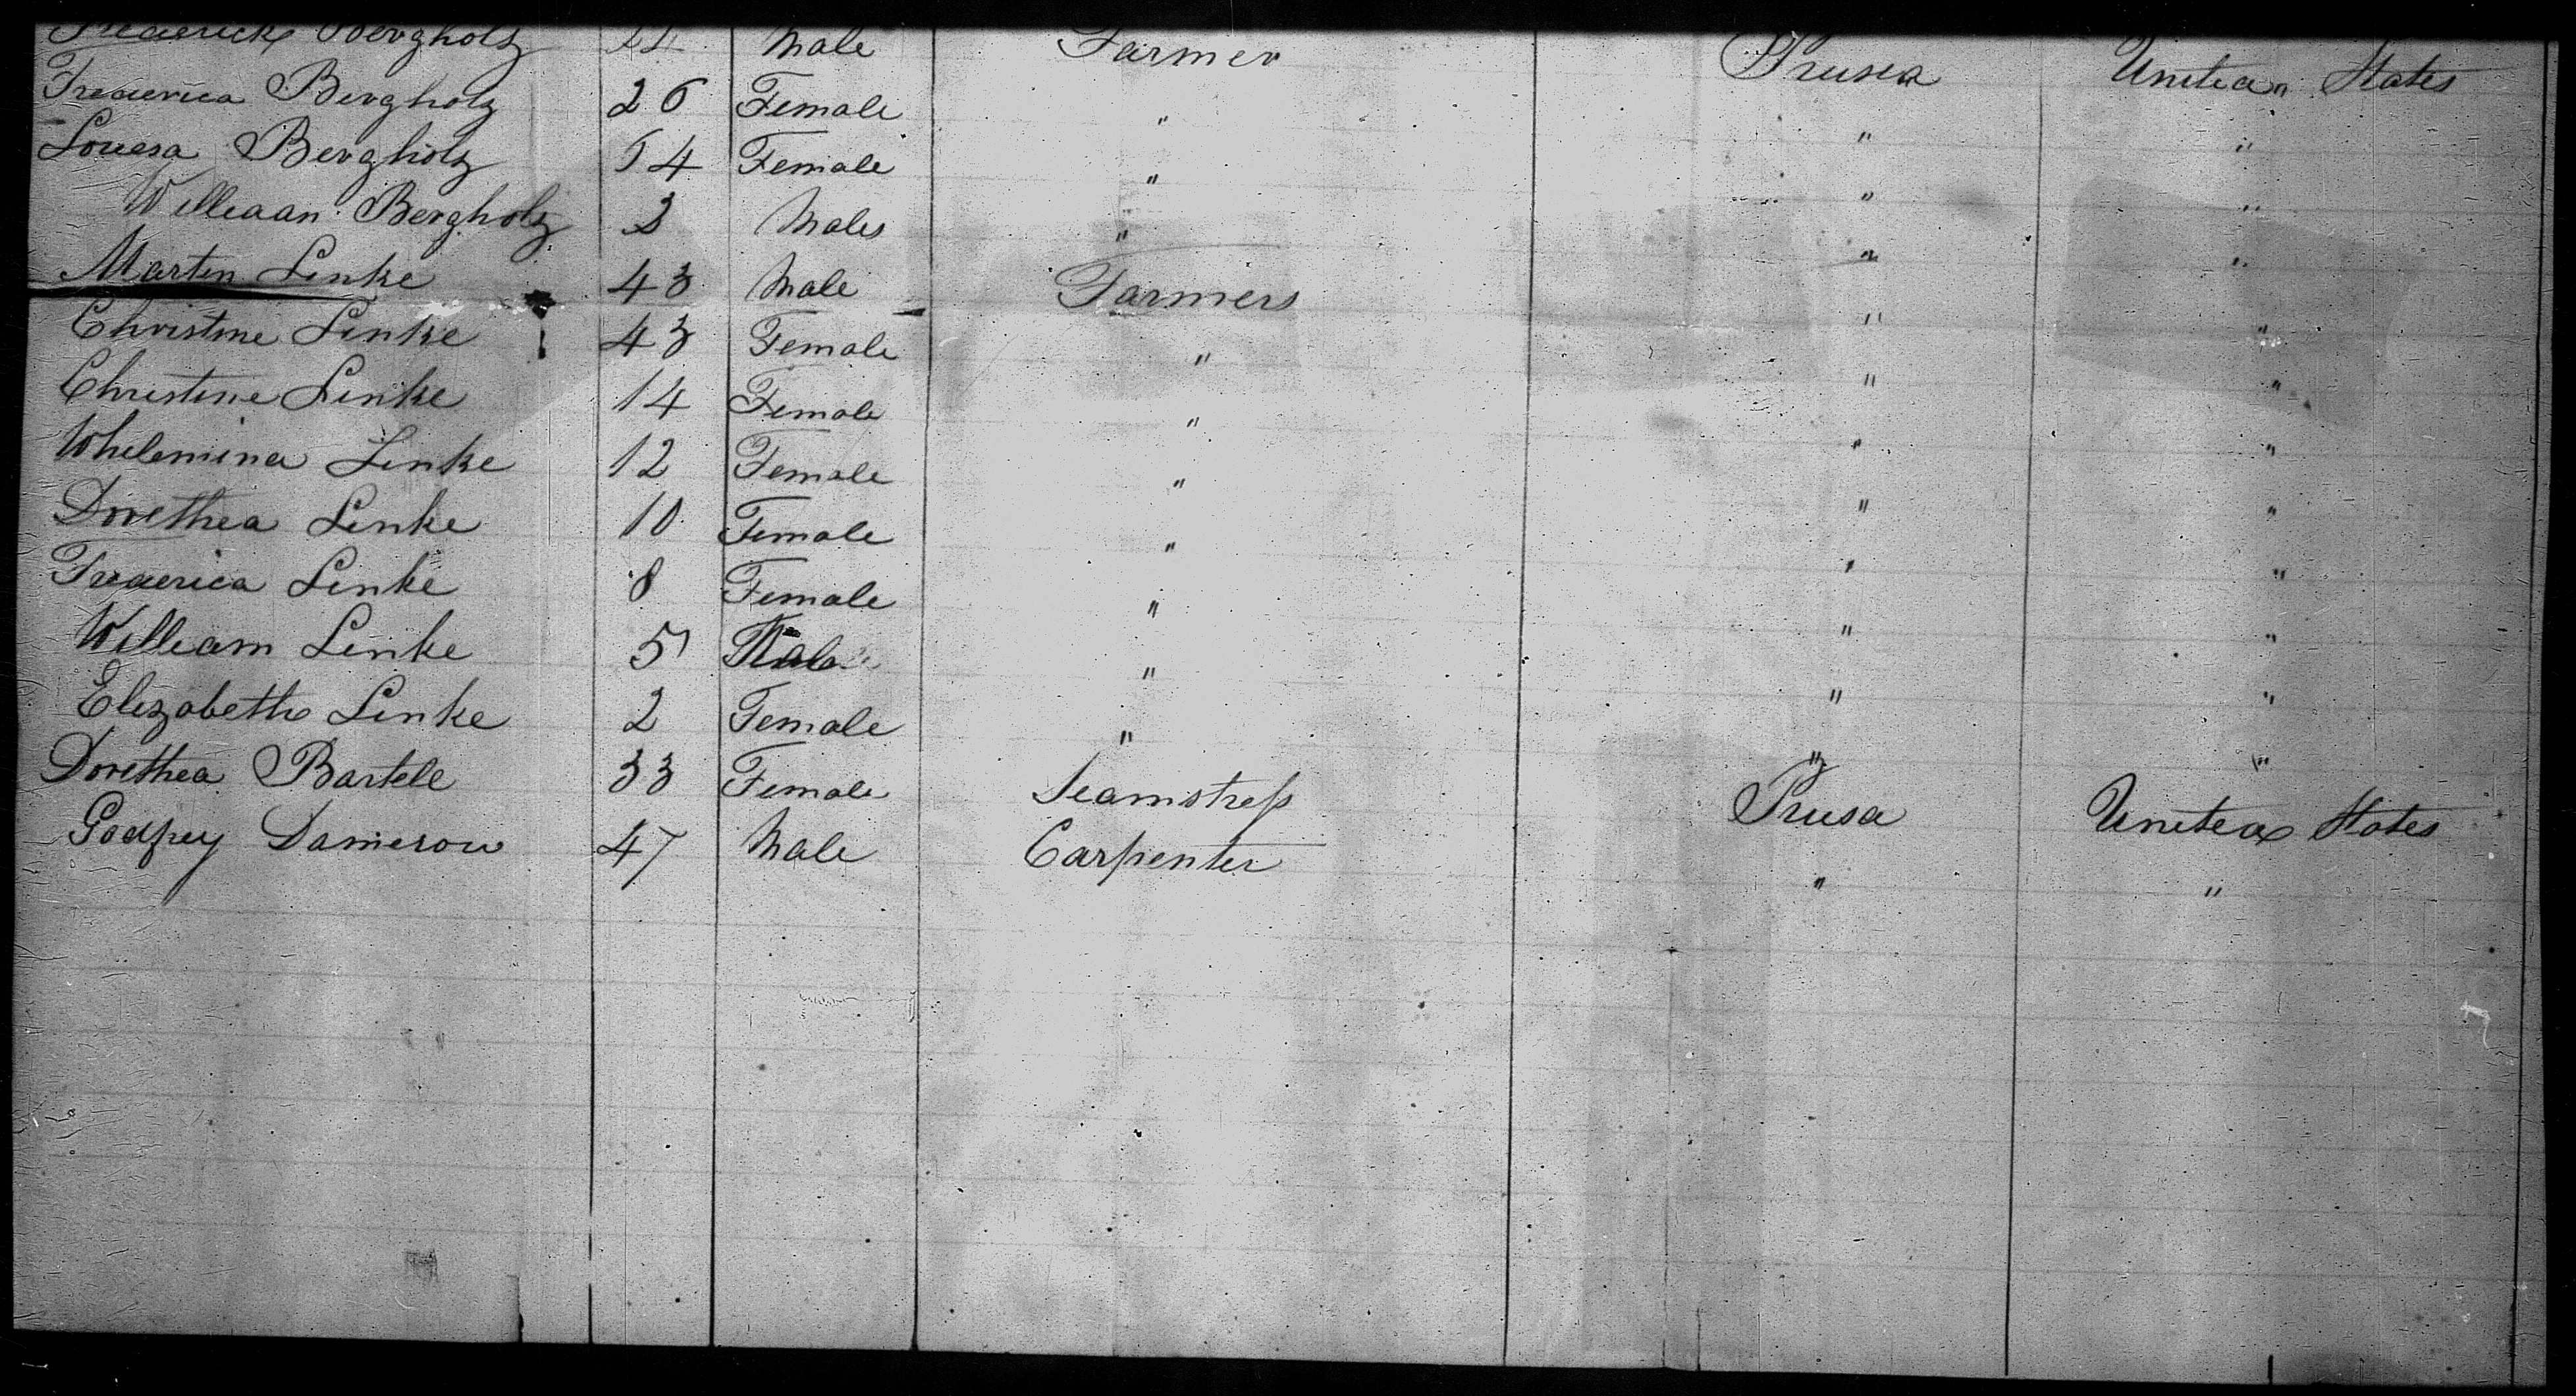 Frederick Bergholz Male Farmer Prusia United States
Frederica Bergholz 26 Female " " "
Louesa Bergholz 54 Female " " "
Williaan Bergholz 2 Males " " "
Martin Linke 43 Male Farmers " "
Christine Linke 43 Female " " "
Christine Linke 14 Female " " "
Whelemina Linke 12 Female " " "
Dorethea Linke 10 Female " " "
Frederica Linke 8 Female " " "
William Linke 5 Male " " "
Elizabeth Linke 2 Female " " "
Dorethea Bartell 33 Female Seamstress Prusa United States
Godfrey Damerow 47 Male Carpenter " "